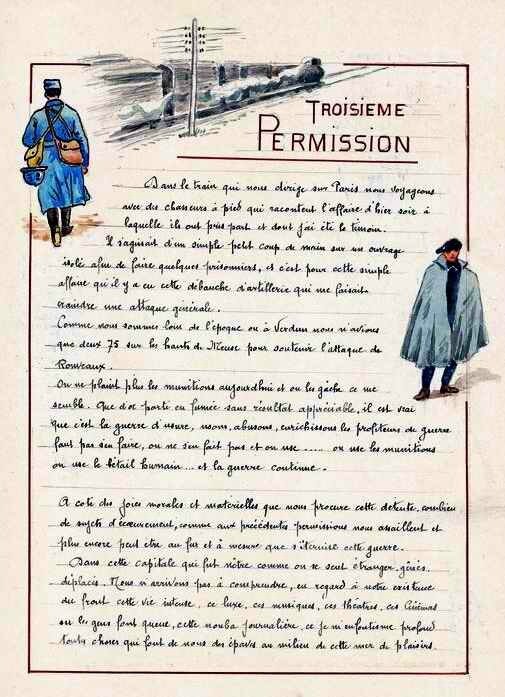 TROISIEME
PERMISSION
Dans le train qui nous dirige sur Paris nous voyageons
avec des chasseurs à pied qui racontent l'affaire d'hier soir à
laquelle ils ont pris part et dont j'ai été le témoin.
Il s'agissait d'un simple petit coup de main sur un ouvrage
isolé afin de faire quelques prisonniers, et c'est pour cette simple
affaire qu'il y a eu cette débauche d'artillerie qui me faisait
craindre une attaque générale.
Comme nous sommes loin de l'époque ou à Verdun nous n'avions
que deux 75 sur les hauts de Meuse pour soutenir l'attaque de
Ronvaux.
On ne plaint plus les munitions aujourdhui et on les gâche ce me
semble. Que d'or parti en fumée sans résultat appréciable, il est vrai
que c'est la guerre d'usure, usons, abusons, enrichissons les profiteurs de guerre
faut pas s'en faire, on ne s'en fait pas et on use ..... on use les munitions
on use le bétail humain ... et la guerre continue.
A coté des joies morales et matérielles que nous procure cette détente, combien
de sujets d'écœurement, comme aux précédentes permissions nous assaillent et
plus encore peut etre au fur et à mesure que s'éternise cette guerre.
Dans cette capitale qui fut nôtre comme on se sent étranger, gênés,
déplacés. Nous n'arrivons pas à comprendre, en regard à notre existence
du front cette vie intense, ce luxe, ces musiques, ces théatres, ces cinémas
ou les gens font queue, cette nouba journalière, ce je m'enfoutisme profond
toutes choses qui font de nous des épaves au milieu de cette mer de plaisirs.